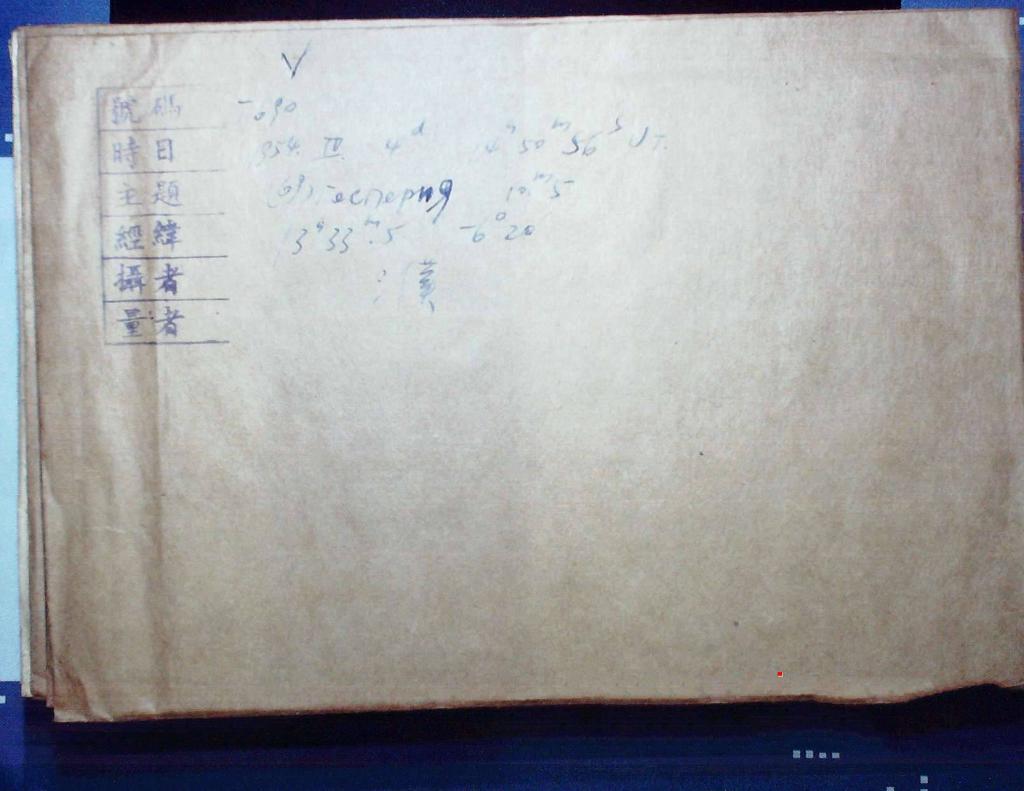 V
號碼 -690
時日 1954. IV. 4ᵈ 14ʰ50ᵐ56ˢ UT.
主題 (69) Гесперия 10.ᵐ5
經緯 13ʰ33ᵐ.5 -6°20
攝者
量者